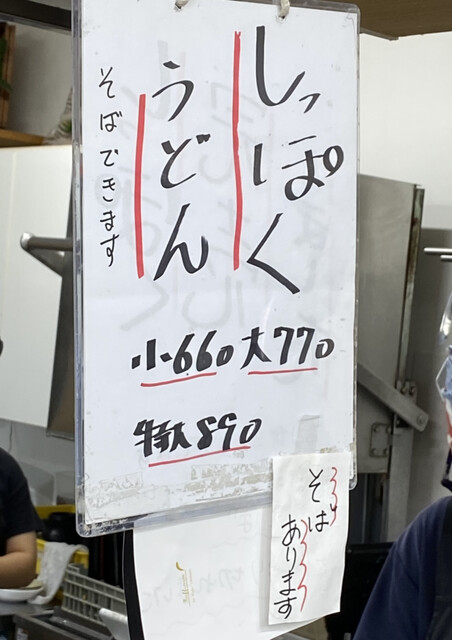 しっぽく
うどん
そばできます
小660 大770
特大890
そば
あります